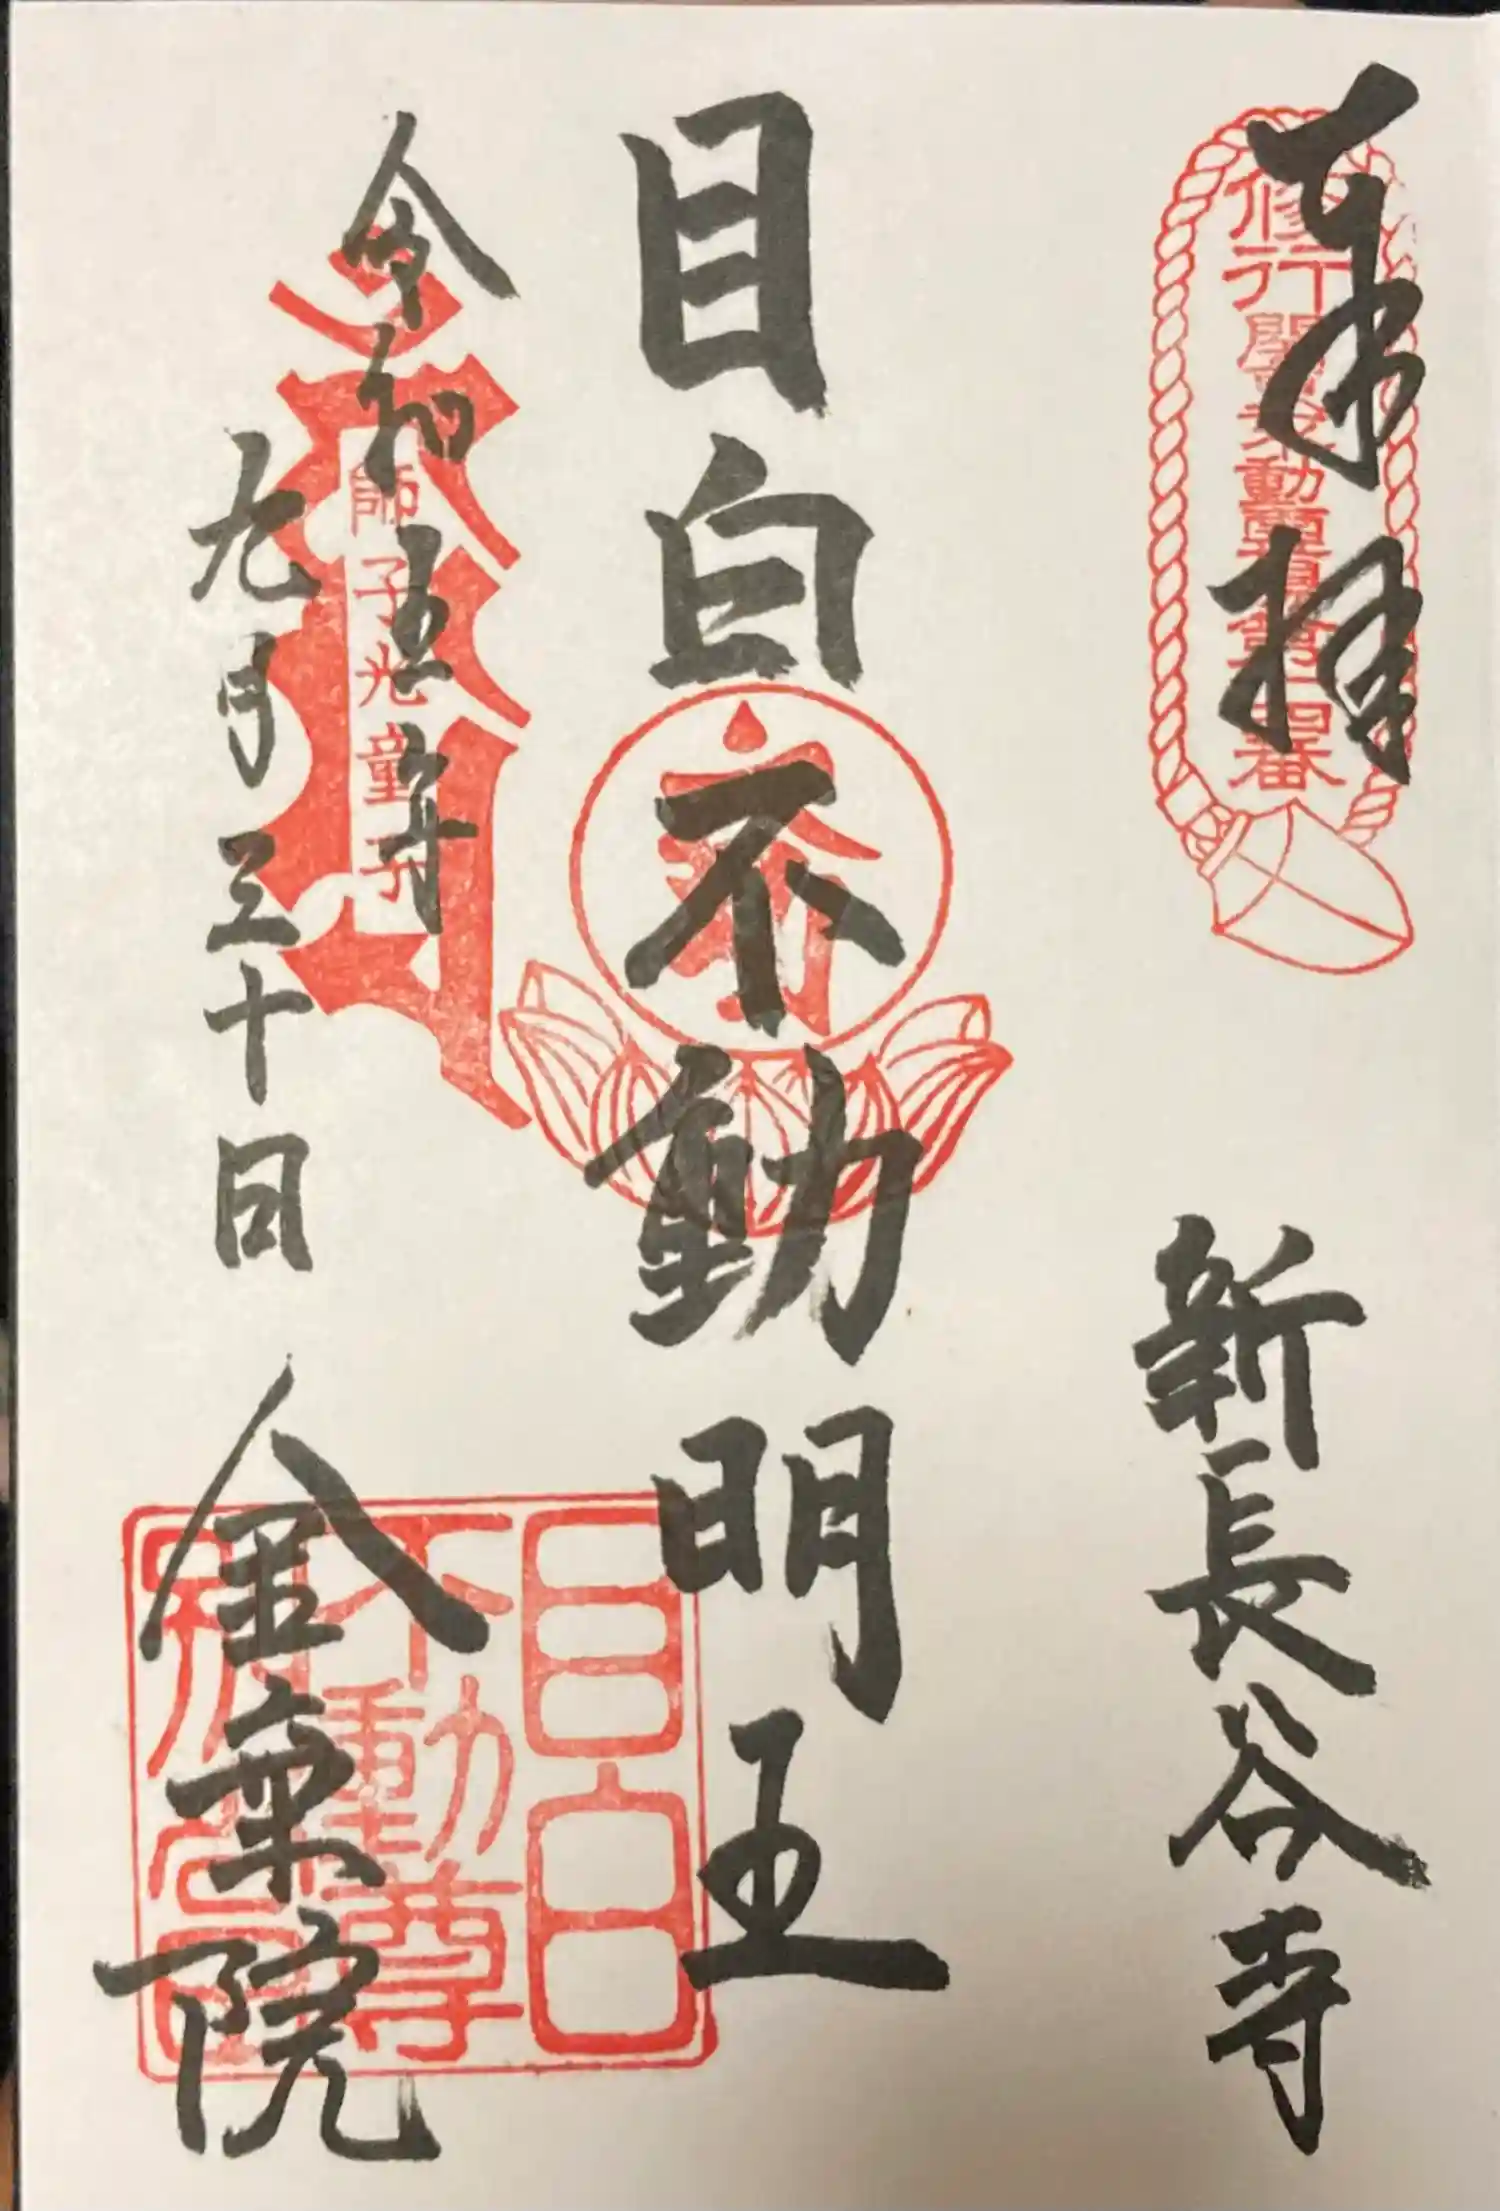 奉拝
修行関東不動霊場第十四番
新長谷寺
目白不動明王
目白
不動尊
令和五年
九月三十日
師子光童子
金乗院